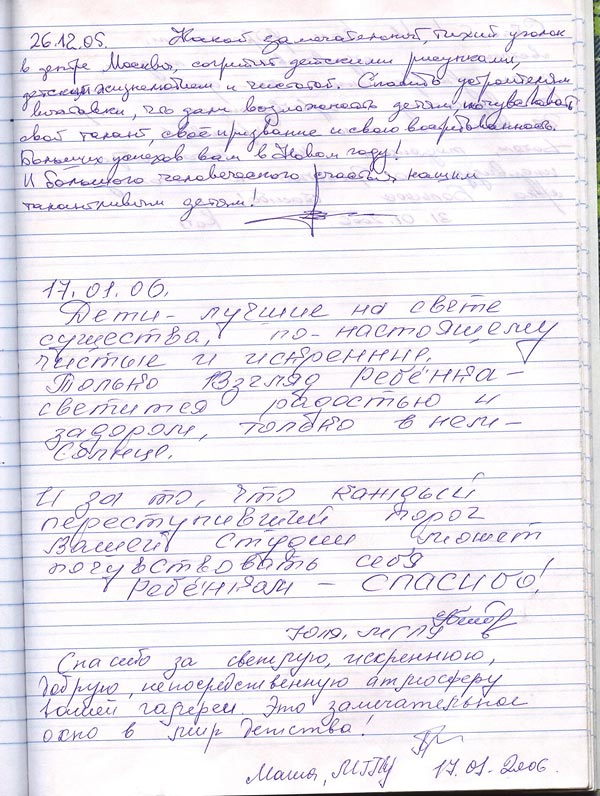 26.12.05. Какой замечательный, тихий уголок
в центре Москвы, согретый детскими рисунками,
детским жизнелюбием и чистотой. Спасибо устроителям
выставки, что дали возможность детям почувствовать
свой талант, своё призвание и свою востребованность.
Больших успехов вам в Новом году!
И большого человеческого счастья нашим
талантливым детям!
17.01.06.
Дети - лучшие на свете
существа, по-настоящему
чистые и искренние.
Только взгляд ребёнка -
светится радостью и
задором, только в нём -
солнце.
И за то, что каждый
переступивший порог
Вашей студии может
почувствовать себя
ребёнком - СПАСИБО!
Юля, МГПУ
Спасибо за светлую, искреннюю,
добрую, непосредственную атмосферу
вашей галереи. Это замечательное
окно в мир детства!
Маша, МГПУ 17.01.2006.